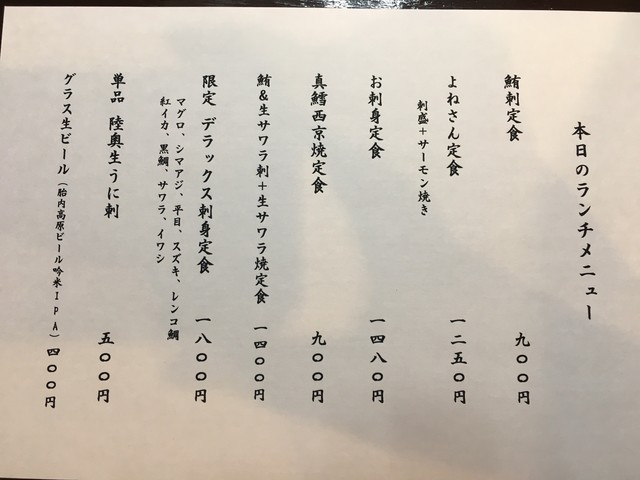 本日のランチメニュー
鮪刺定食 九〇〇円
よねさん定食 一二五〇円
刺盛＋サーモン焼き
お刺身定食 一四八〇円
真鱈西京焼定食 九〇〇円
鮪＆生サワラ刺＋生サワラ焼定食 一四〇〇円
限定 デラックス刺身定食 一八〇〇円
マグロ、シマアジ、平目、スズキ、レンコ鯛
紅イカ、黒鯛、サワラ、イワシ
単品 陸奥生うに刺 五〇〇円
グラス生ビール（胎内高原ビール吟米IPA）四〇〇円